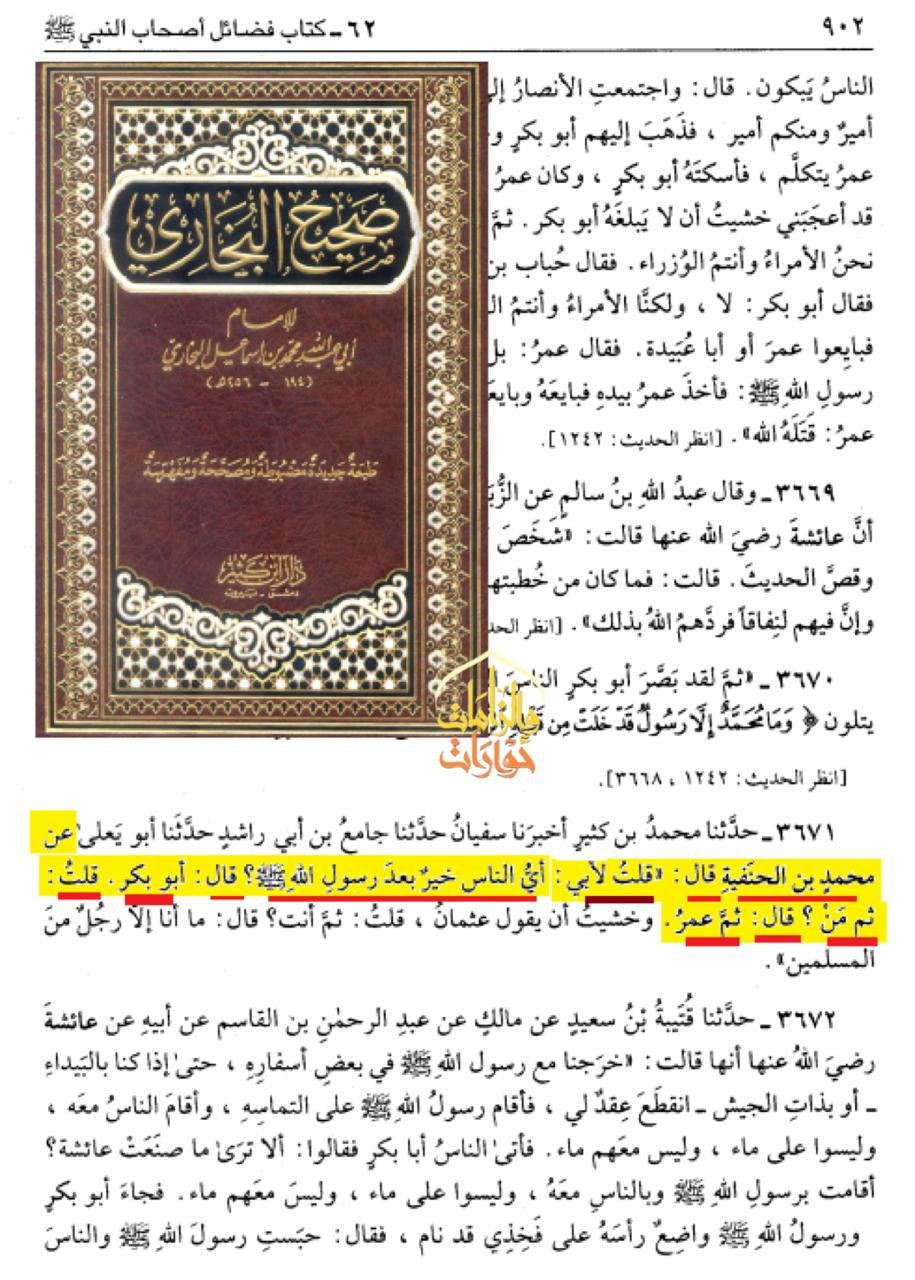 ٩٠٢
٦٢ - كتاب فضائل أصحاب النبي ﷺ
الناسُ يَبكون. قال: واجتمعتِ الأنصارُ
أميرٌ ومنكم أمير، فذَهَبَ إليهم أبو بكرٍ
عمرُ يتكلَّم، فأسكتَهُ أبو بكرٍ، وكان عمرُ
قد أعجَبَني خشيتُ أن لا يَبلغَهُ أبو بكر. ثمَّ
نحنُ الأمراءُ وأنتمُ الوُزراء. فقال حُباب بن
فقال أبو بكر: لا، ولكنَّا الأمراءُ وأنتمُ
فبايِعوا عمرَ أو أبا عُبَيدة. فقال عمرُ: بل
رسولِ اللهِ ﷺ: فأخذَ عمرُ بيدهِ فبايَعَهُ
عمرُ: قَتَلَهُ الله». [انظر الحديث: ١٢٤٢].
٣٦٦٩ - وقال عبدُ اللهِ بنُ سالمٍ عن
أنَّ عائشةَ رضيَ الله عنها قالت: «شَخَصَ
وقصَّ الحديثَ. قالت: فما كان من خُطبتها
وإنَّ فيهم لنِفاقاً فردَّهمُ اللهُ بذلك». [انظر
٣٦٧٠ - «ثمَّ لقد بَصَّرَ أبو بكرٍ الناسَ
يتلون ﴿وَمَا مُحَمَّدٌ إِلَّا رَسُولٌ قَدْ خَلَتْ مِن
[انظر الحديث: ١٢٤٢، ٣٦٦٨].
صَحِيحُ البُخَارِي
للإمام
أبي عبد الله محمد بن إسماعيل البخاري
(١٩٤ - ٢٥٦هـ)
طبعَة جَديدَة مَضبُوطَة وَمُصَحَّحَة وَمُفَهرسَة
دار ابن كثير
دمشق - بيروت
حوارات
٣٦٧١ - حدَّثنا محمدُ بن كثيرٍ أخبرَنا سفيانُ حدَّثنا جامعُ بن أبي راشدٍ حدَّثَنا أبو يَعلىٰ عن
محمدِ بن الحنَفيةِ قال: «قلتُ لأبي: أيُّ الناس خيرٌ بعدَ رسولِ اللهِ ﷺ؟ قال: أبو بكر. قلتُ:
ثم مَنْ؟ قال: ثمَّ عمرُ. وخشيتُ أن يقول عثمانُ، قلتُ: ثمَّ أنت؟ قال: ما أنا إلَّا رجُلٌ منَ
المسلمين».
٣٦٧٢ - حدَّثنا قُتَيبةُ بْنُ سعيدٍ عن مالكٍ عن عبدِ الرحمٰنِ بن القاسم عن أبيهِ عن عائشةَ
رضيَ اللهُ عنها أنها قالت: «خرَجنا مع رسول اللهِ ﷺ في بعضِ أسفارِهِ، حتىٰ إذا كنا بالبَيداءِ
- أو بذاتِ الجيش - انقطَعَ عِقدٌ لي، فأقام رسولُ اللهِ ﷺ على التماسِهِ، وأقامَ الناسُ معَه،
وليسوا على ماء، وليس معَهم ماء. فأتىٰ الناسُ أبا بكرٍ فقالوا: ألا ترَىٰ ما صنَعَتْ عائشة؟
أقامت برسولِ اللهِ ﷺ وبالناسِ معَهُ، وليسوا على ماء، وليسَ معَهم ماء. فجاءَ أبو بكرٍ
ورسولُ اللهِ ﷺ واضِعٌ رأسَهُ على فَخِذي قد نام، فقال: حبَستِ رسولَ اللهِ ﷺ والناسَ